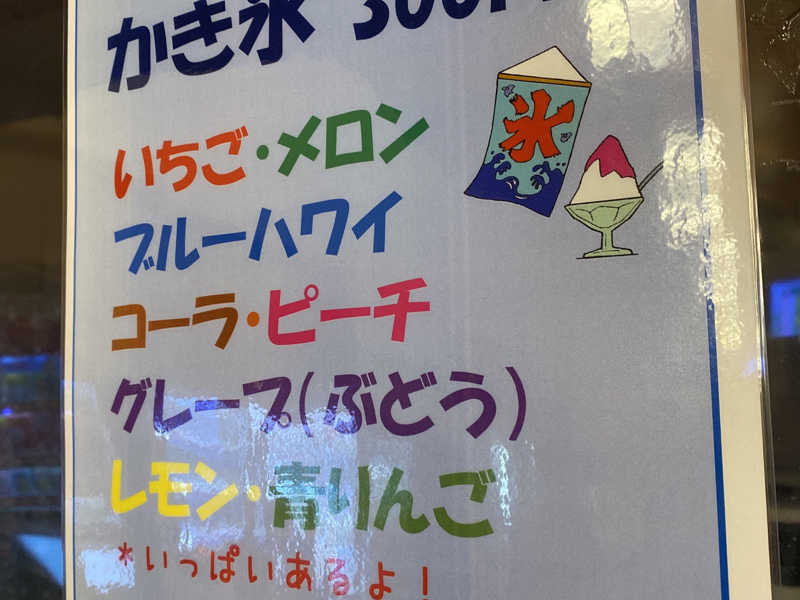 かき氷 300
氷
いちご・メロン
ブルーハワイ
コーラ・ピーチ
グレープ(ぶどう)
レモン・青りんご
*いっぱいあるよ!